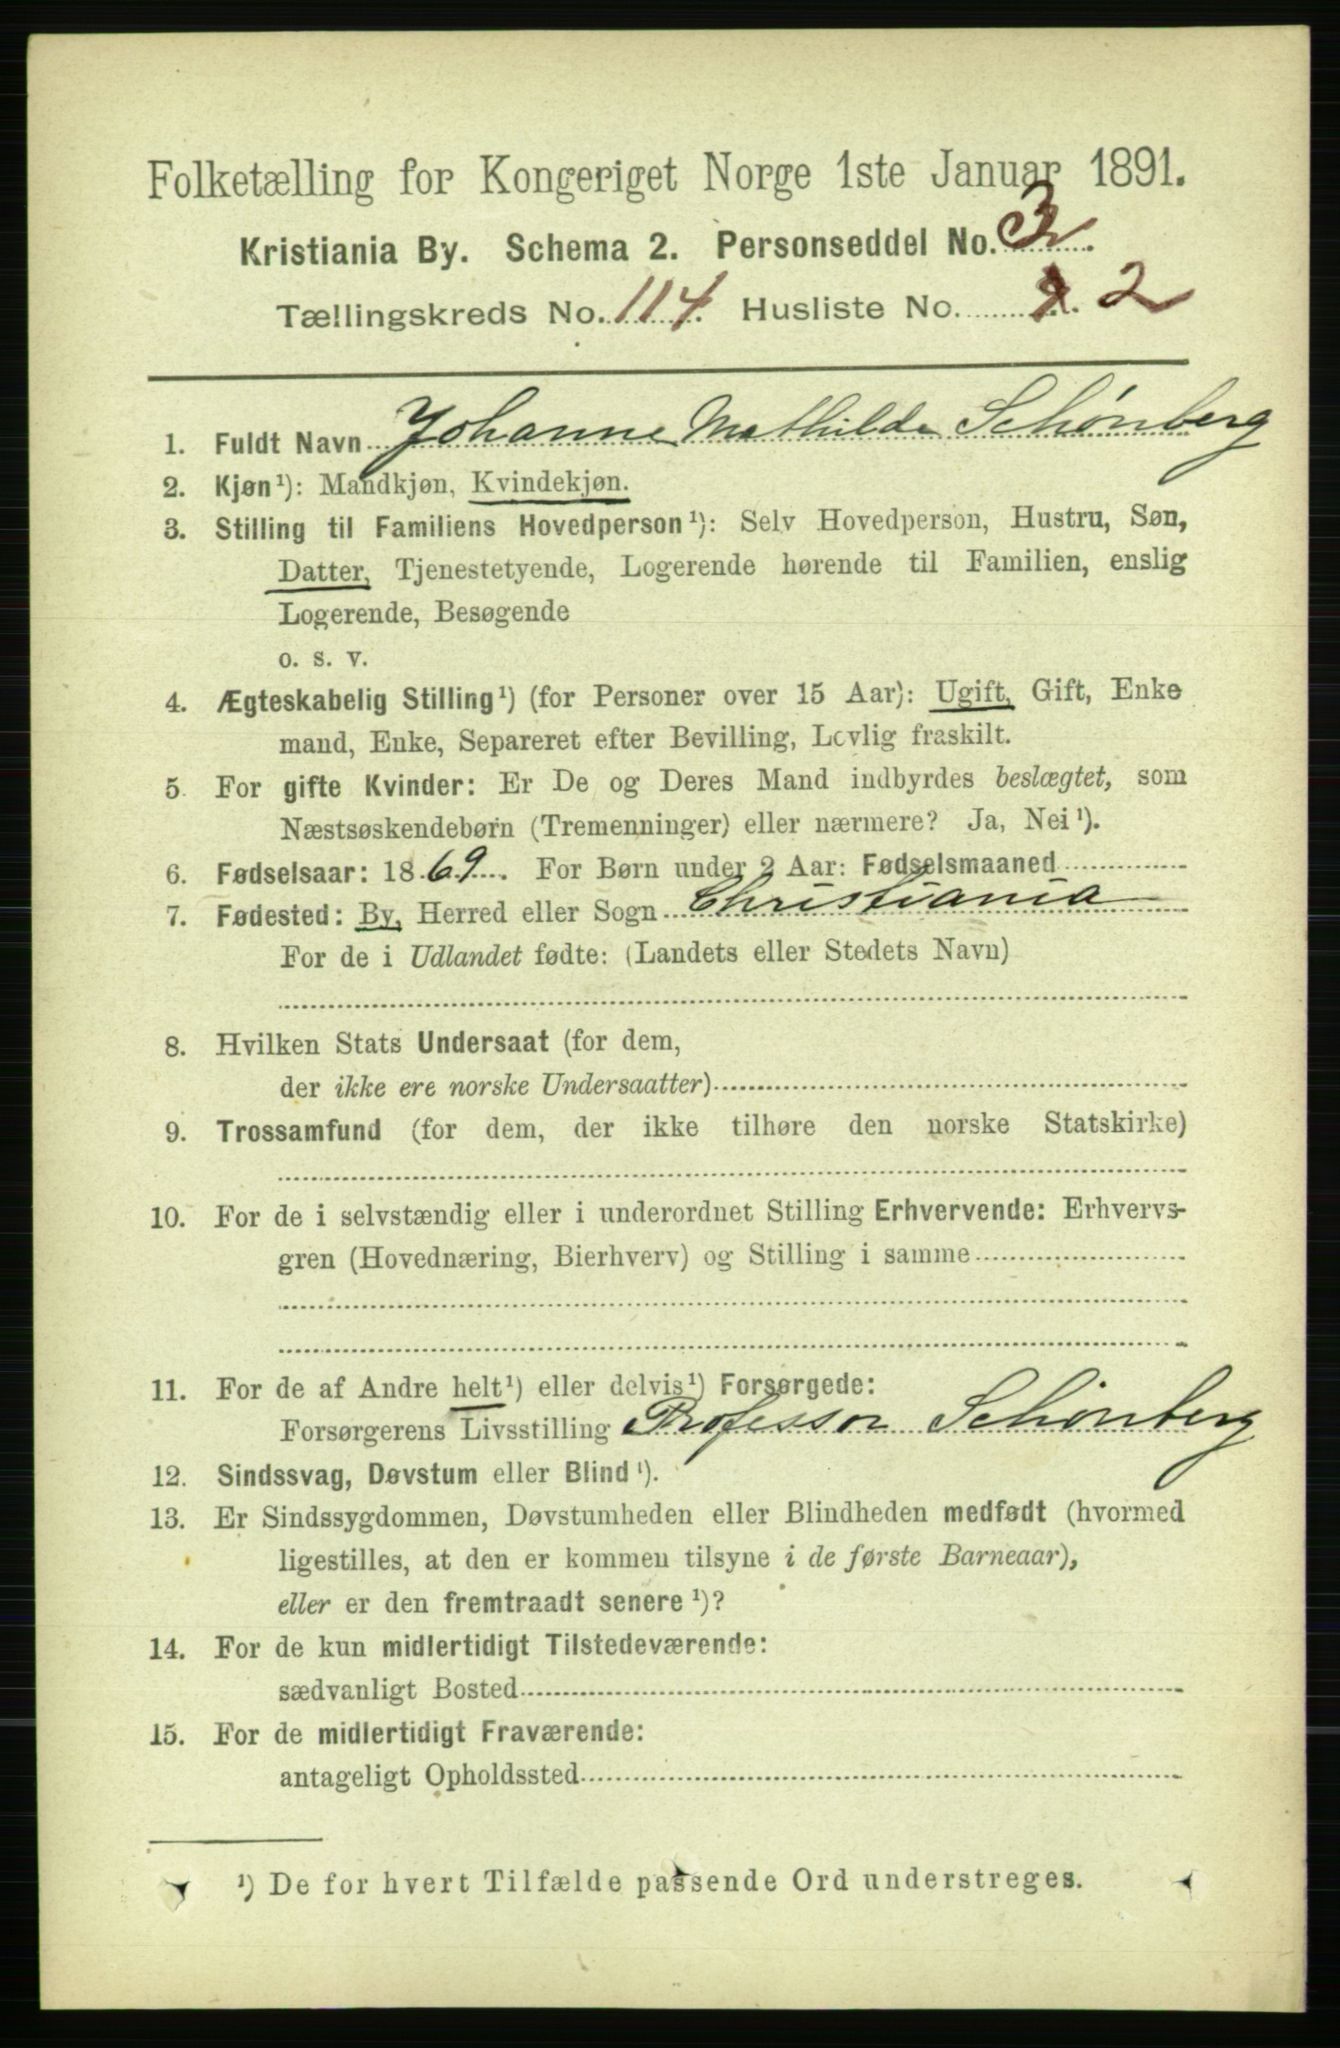 Folketælling for Kongeriget Norge 1ste Januar 1891.
Kristiania By. Schema 2. Personseddel No.
Tællingskreds No. 114. Husliste No. 2
1. Fuldt Navn Johanne Mathilde Schønberg
2. Kjøn¹): Mandkjøn, Kvindekjøn.
3. Stilling til Familiens Hovedperson¹): Selv Hovedperson, Hustru, Søn,
Datter, Tjenestetyende, Logerende hørende til Familien, enslig
Logerende, Besøgende
o. s. v.
4. Ægteskabelig Stilling¹) (for Personer over 15 Aar): Ugift, Gift, Enke
mand, Enke, Separeret efter Bevilling, Lovlig fraskilt.
5. For gifte Kvinder: Er De og Deres Mand indbyrdes beslægtet, som
Næstsøskendebørn (Tremenninger) eller nærmere? Ja, Nei¹).
6. Fødselsaar: 1869. For Børn under 2 Aar: Fødselsmaaned
7. Fødested: By, Herred eller Sogn Christiania
For de i Udlandet fødte: (Landets eller Stedets Navn)
8. Hvilken Stats Undersaat (for dem,
der ikke ere norske Undersaatter)
9. Trossamfund (for dem, der ikke tilhøre den norske Statskirke)
10. For de i selvstændig eller i underordnet Stilling Erhvervende: Erhvervs-
gren (Hovednæring, Bierhverv) og Stilling i samme
11. For de af Andre helt¹) eller delvis¹) Forsørgede:
Forsørgerens Livsstilling Professor Schønberg
12. Sindssvag, Døvstum eller Blind¹).
13. Er Sindssygdommen, Døvstumheden eller Blindheden medfødt (hvormed
ligestilles, at den er kommen tilsyne i de første Barneaar),
eller er den fremtraadt senere¹)?
14. For de kun midlertidigt Tilstedeværende:
sædvanligt Bosted
15. For de midlertidigt Fraværende:
antageligt Opholdssted
¹) De for hvert Tilfælde passende Ord understreges.